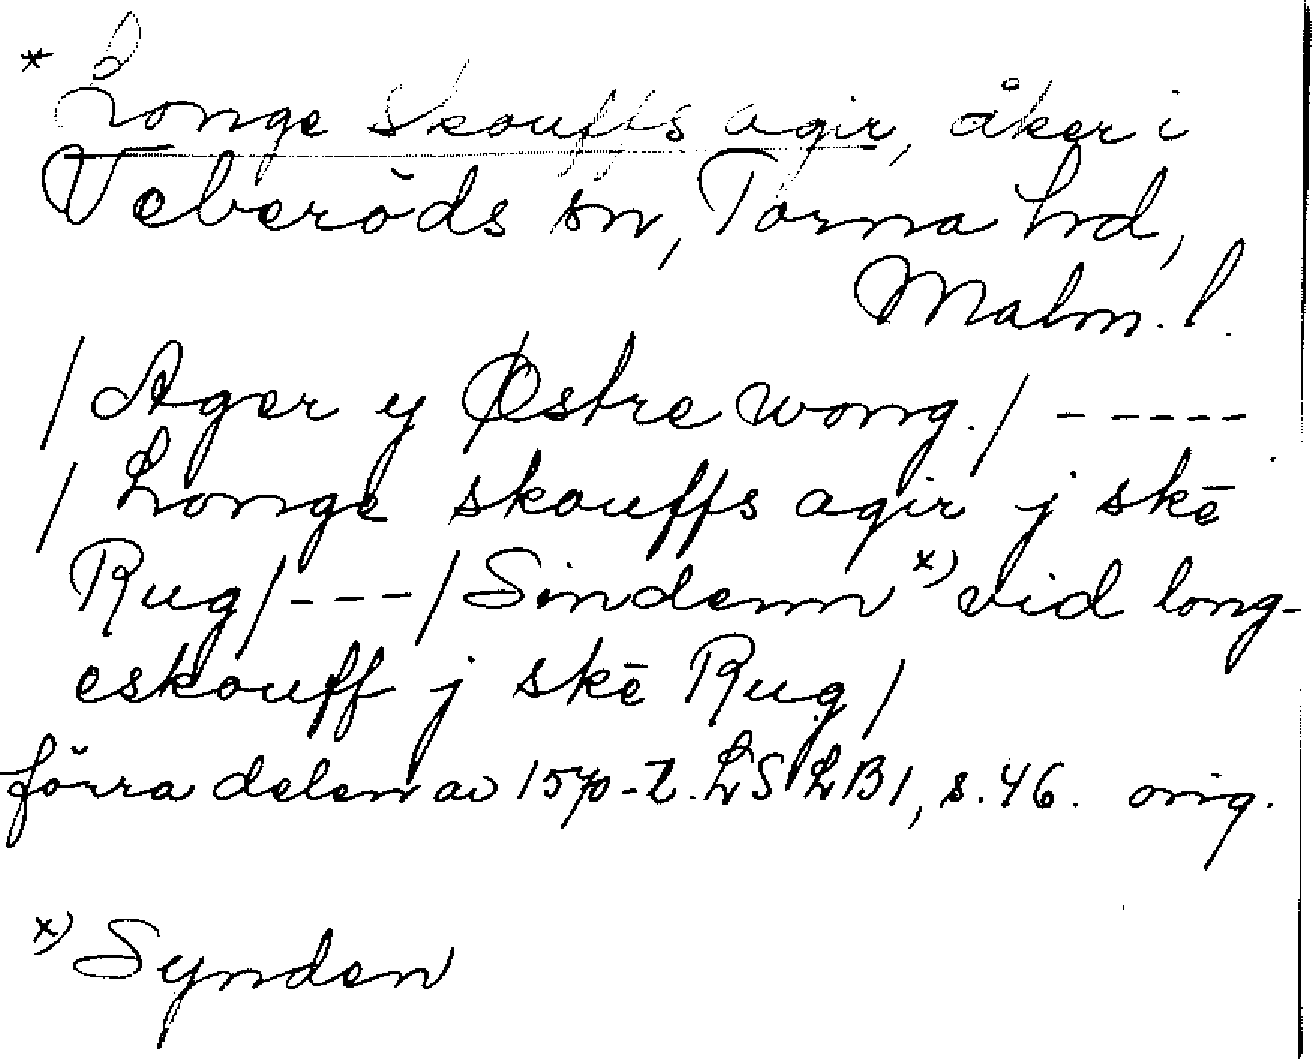 * Longe skouffs agir, åker i
Veberöds sn, Torna hrd,
Malm. l.
/ Ager y Østre wong. / -----
/ Longe skouffs agir j skē
Rug / --- / Sindenn x) vid long-
eskouff j skē Rug /
förra delen av 1570-t. LSLB1, s. 46. orig.
x) Synden